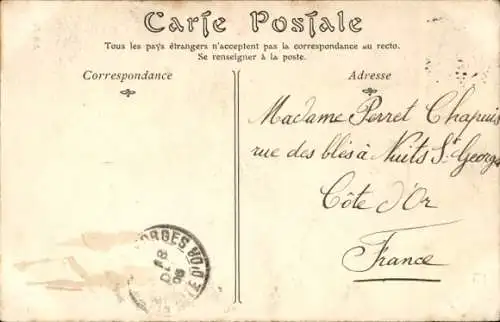 Carte Postale
Tous les pays étrangers n'acceptent pas la correspondance au recto.
Se renseigner à la poste.
Correspondance
Adresse
Madame Perret Chapuis
rue des blés à Nuits St Georges
Côte d'Or
France
ORGES